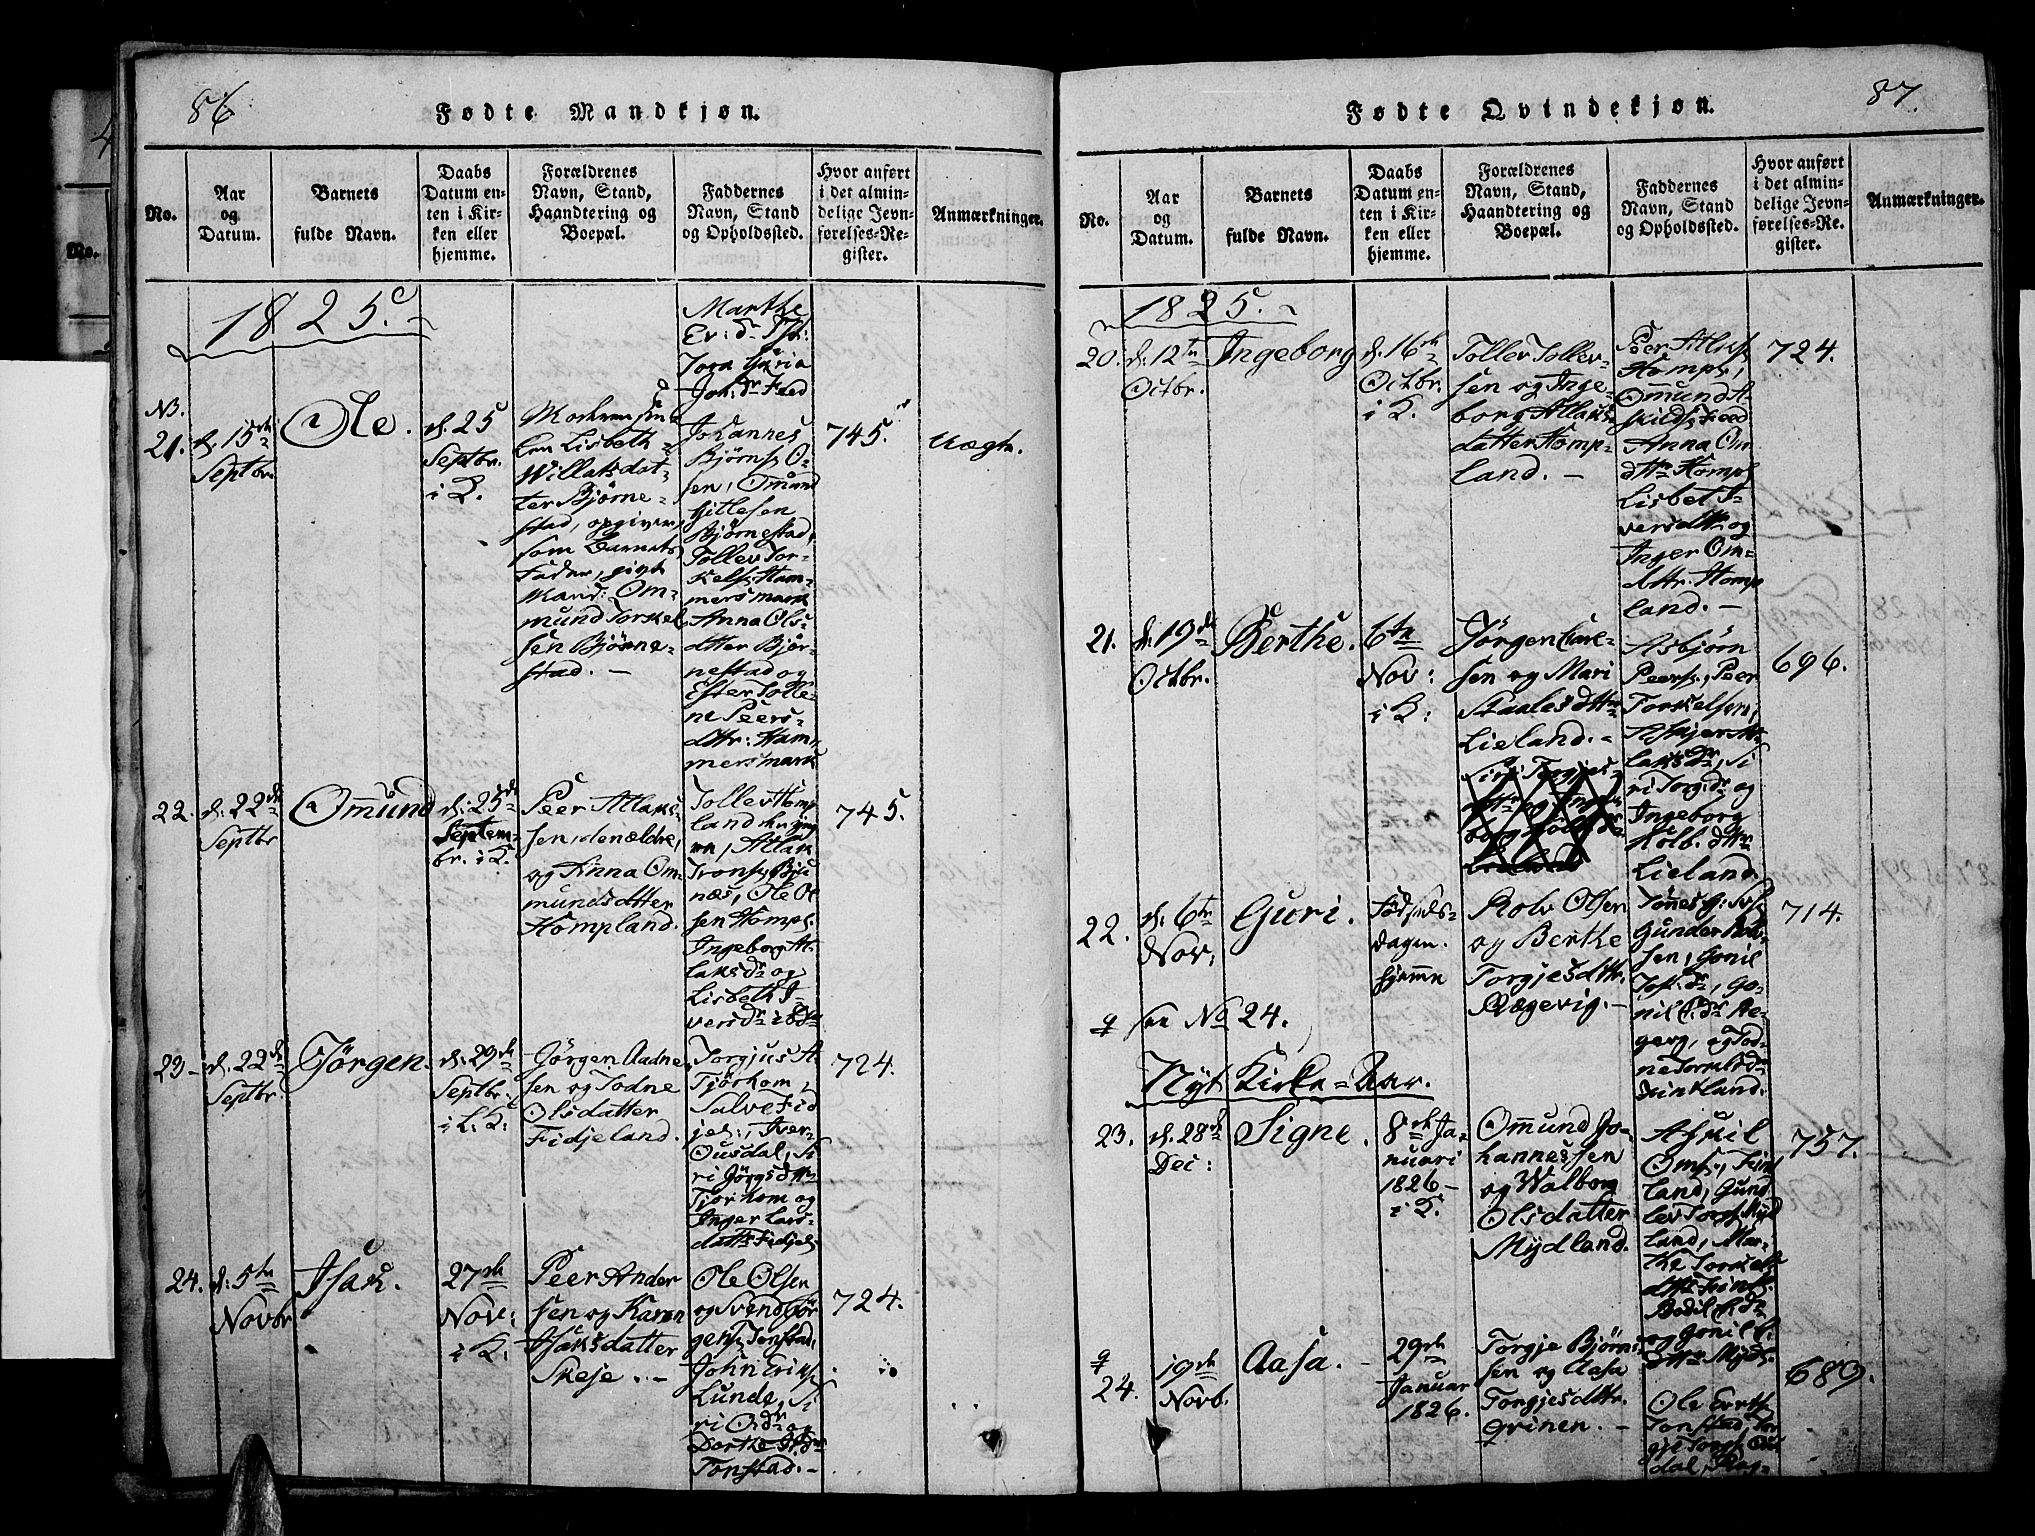 86
Fødte Mandkjøn.
No.
Aar
og
Datum.
Barnets
fulde Navn.
Daabs
Datum en-
ten i Kir-
ken eller
hjemme.
Forældrenes
Navn, Stand,
Haandtering og
Boepæl.
Faddernes
Navn, Stand
og Opholdssted.
Hvor anført
i det almin-
delige Jevn-
førelses-Re-
gister.
Anmærkninger.
1825.
Marthe
Johdr Feed
NB.
21.
d. 15de
Septbr.
Ole.
d. 25
Septbr.
i K.
Lisbeth
Willaksdat-
ter Bjørne-
stad, opgiver
som Barnets
Fader, gift
Mand: Om-
mund Torkel
sen Bjørne-
stad. –
Johannes
Bjørns O-
sen, Omund
Gitlesen
Bjørnestad,
Tollev Tor-
kels Ham-
mersmark
Anna Ols-
dtter Bjør-
nestad og
Ester Tolle-
ne Peers-
dttr: Ham-
mersmark
745.
Uægte.
22.
d. 22de
Septbr
Omund
d. 25de
Septem-
br. i K.
Peer Atlaks-
sen, den ældre,
og Anna Om-
mundsdtter
Hompland.
Tollev Homp
land den yng
re, Atlak
Trons, Bju
næs, Ole Ol
sen Hompl.
Ingeborg At-
laksdr og
Lisbeth I-
versdr
745.
23.
d. 22de
Septbr.
Jörgen.
d. 29de
Septbr.
i L. K.
Jörgen Aadne
sen og Todne
Olsdatter
Fidjeland.
Torgjus A.
Tjörhom,
Salve Fid
jel:, Iver
Ousdal, Si
ri Jörgsdttr
Tjorhom og
Inger Lars-
dattr Fidjel.
724.
24.
d. 5te
Novbr
Isak.
27de
Nov:
i K:
Peer Ander
sen og Karen
Isaksdatter
Skeje. –
Ole Olsen
og Svend Jör
gens Tonstad,
John Eriks
Lunde, Si
ri O.dr og
Dorthe
Tonstad. –
724.
87.
Fødte Qvindekjøn.
No.
Aar
og
Datum.
Barnets
fulde Navn.
Daabs
Datum en-
ten i Kir-
ken eller
hjemme.
Forældrenes
Navn, Stand,
Haandtering og
Boepæl.
Faddernes
Navn, Stand
og Opholdssted.
Hvor anført
i det almin-
delige Jevn-
førelses-Re-
gister.
Anmærkninger.
1825.
20.
d. 12te
Octbr.
Ingeborg
d. 16de
Octbr.
i K.
Tollev Tollev-
sen og Inge
borg Atlaks-
datter Homp-
land. –
Peer Atlaks
Hompl,
Omund A-
skilds Feed
Anna Om
dttr Hompl
Lisbet I-
versdttr og
Inger Om-
dttr. Homp
land. –
724.
21.
d. 19de
Octbr.
Berthe.
6te
Nov:
i K:
Jörgen Carl-
sen og Mari
Staalesdttr
Lieland. –
Asbjørn
Peers, Peer
Torkelsen,
Asbjer At-
laksdr, Si
ri Torgsdr og
Ingeborg
Holb. dttr
Lieland.
696.
22.
d. 6te
Nov:
Guri.
Födsels-
dagen.
hjemme
Rolv Olsen
og Berthe
Torgjesdttr.
Rægevig. –
Tønnes
Gunder Rolv-
sen, Gonil
dr, Go-
nil
og Tod-
ne
714.
se No 24.
Nyt Kirke-Aar.
23.
d. 28de
Dec:
Signe.
8de Ja-
nuari
1826 –
i K.
Omund Jo-
hannessen
og Walborg
Olsdatter
Mydland.
Askil
land, Gund
lev Torgs Myd
land, Mar-
the Torkels
Bodil
og Gonil
757.
24.
19de
Novb.
Aasa. –
29de
Januar
1826.
Torgje Bjørn-
sen og Aasa
Torgjesdttr.
Qvinen. –
Ole
Tonstad Tor
gje Torgs Ous
dal,
689.